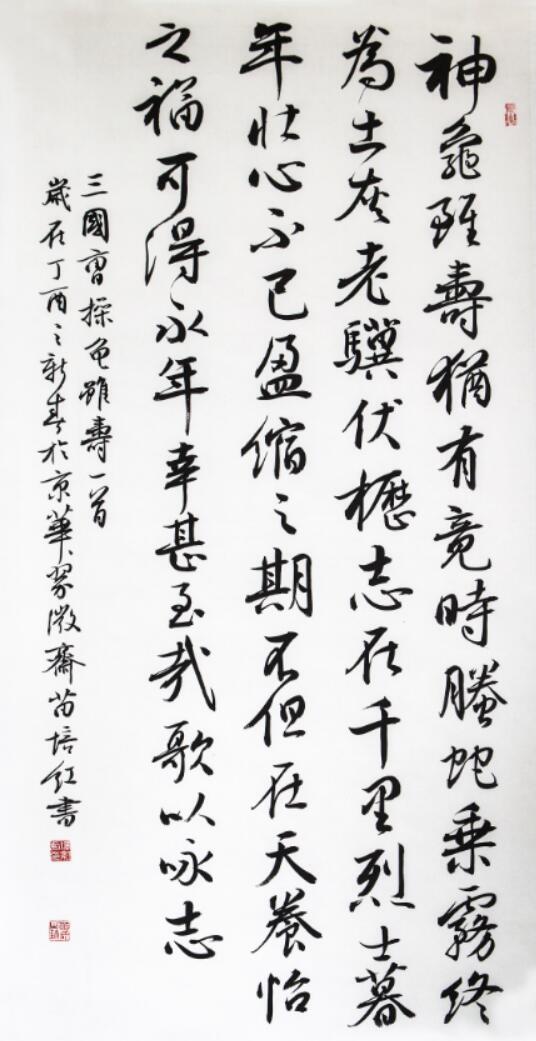 神龜雖壽猶有竟時螣蛇乘霧終
為土灰老驥伏櫪志在千里烈士暮
年壯心不已盈縮之期不但在天養怡
之福可得永年幸甚至哉歌以咏志
三國曹操龟雖壽一首
歲在丁酉之新春於京華翠微齋苗培红書